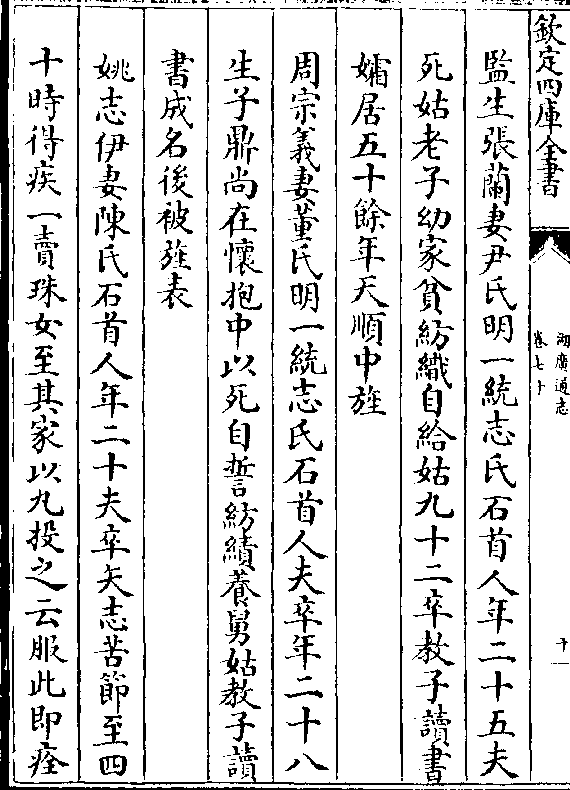 欽定四庫全書
湖廣通志
卷七十
十一
監生張蘭妻尹氏明一統志氏石首人年二十五夫
死姑老子幼家貧紡織自給姑九十二卒教子讀書
孀居五十餘年天順中旌
周宗義妻董氏明一統志氏石首人夫卒年二十八
生子鼎尚在懷抱中以死自誓紡績養舅姑教子讀
書成名後被旌表
姚志伊妻陳氏石首人年二十夫卒矢志苦節至四
十時得疾一賣珠女至其家以丸投之云服此即痊